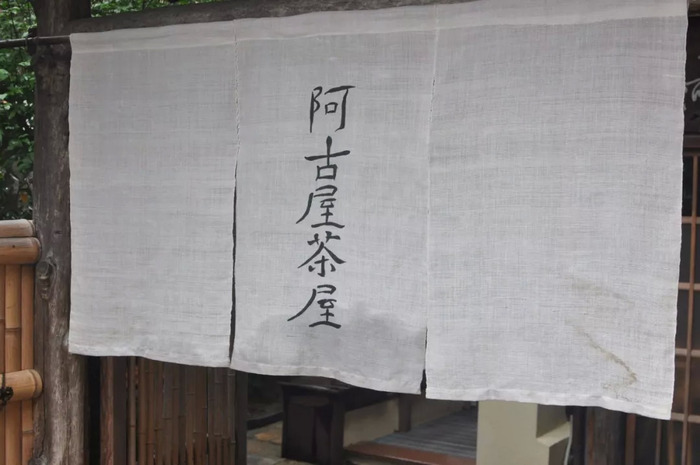 阿古屋茶屋